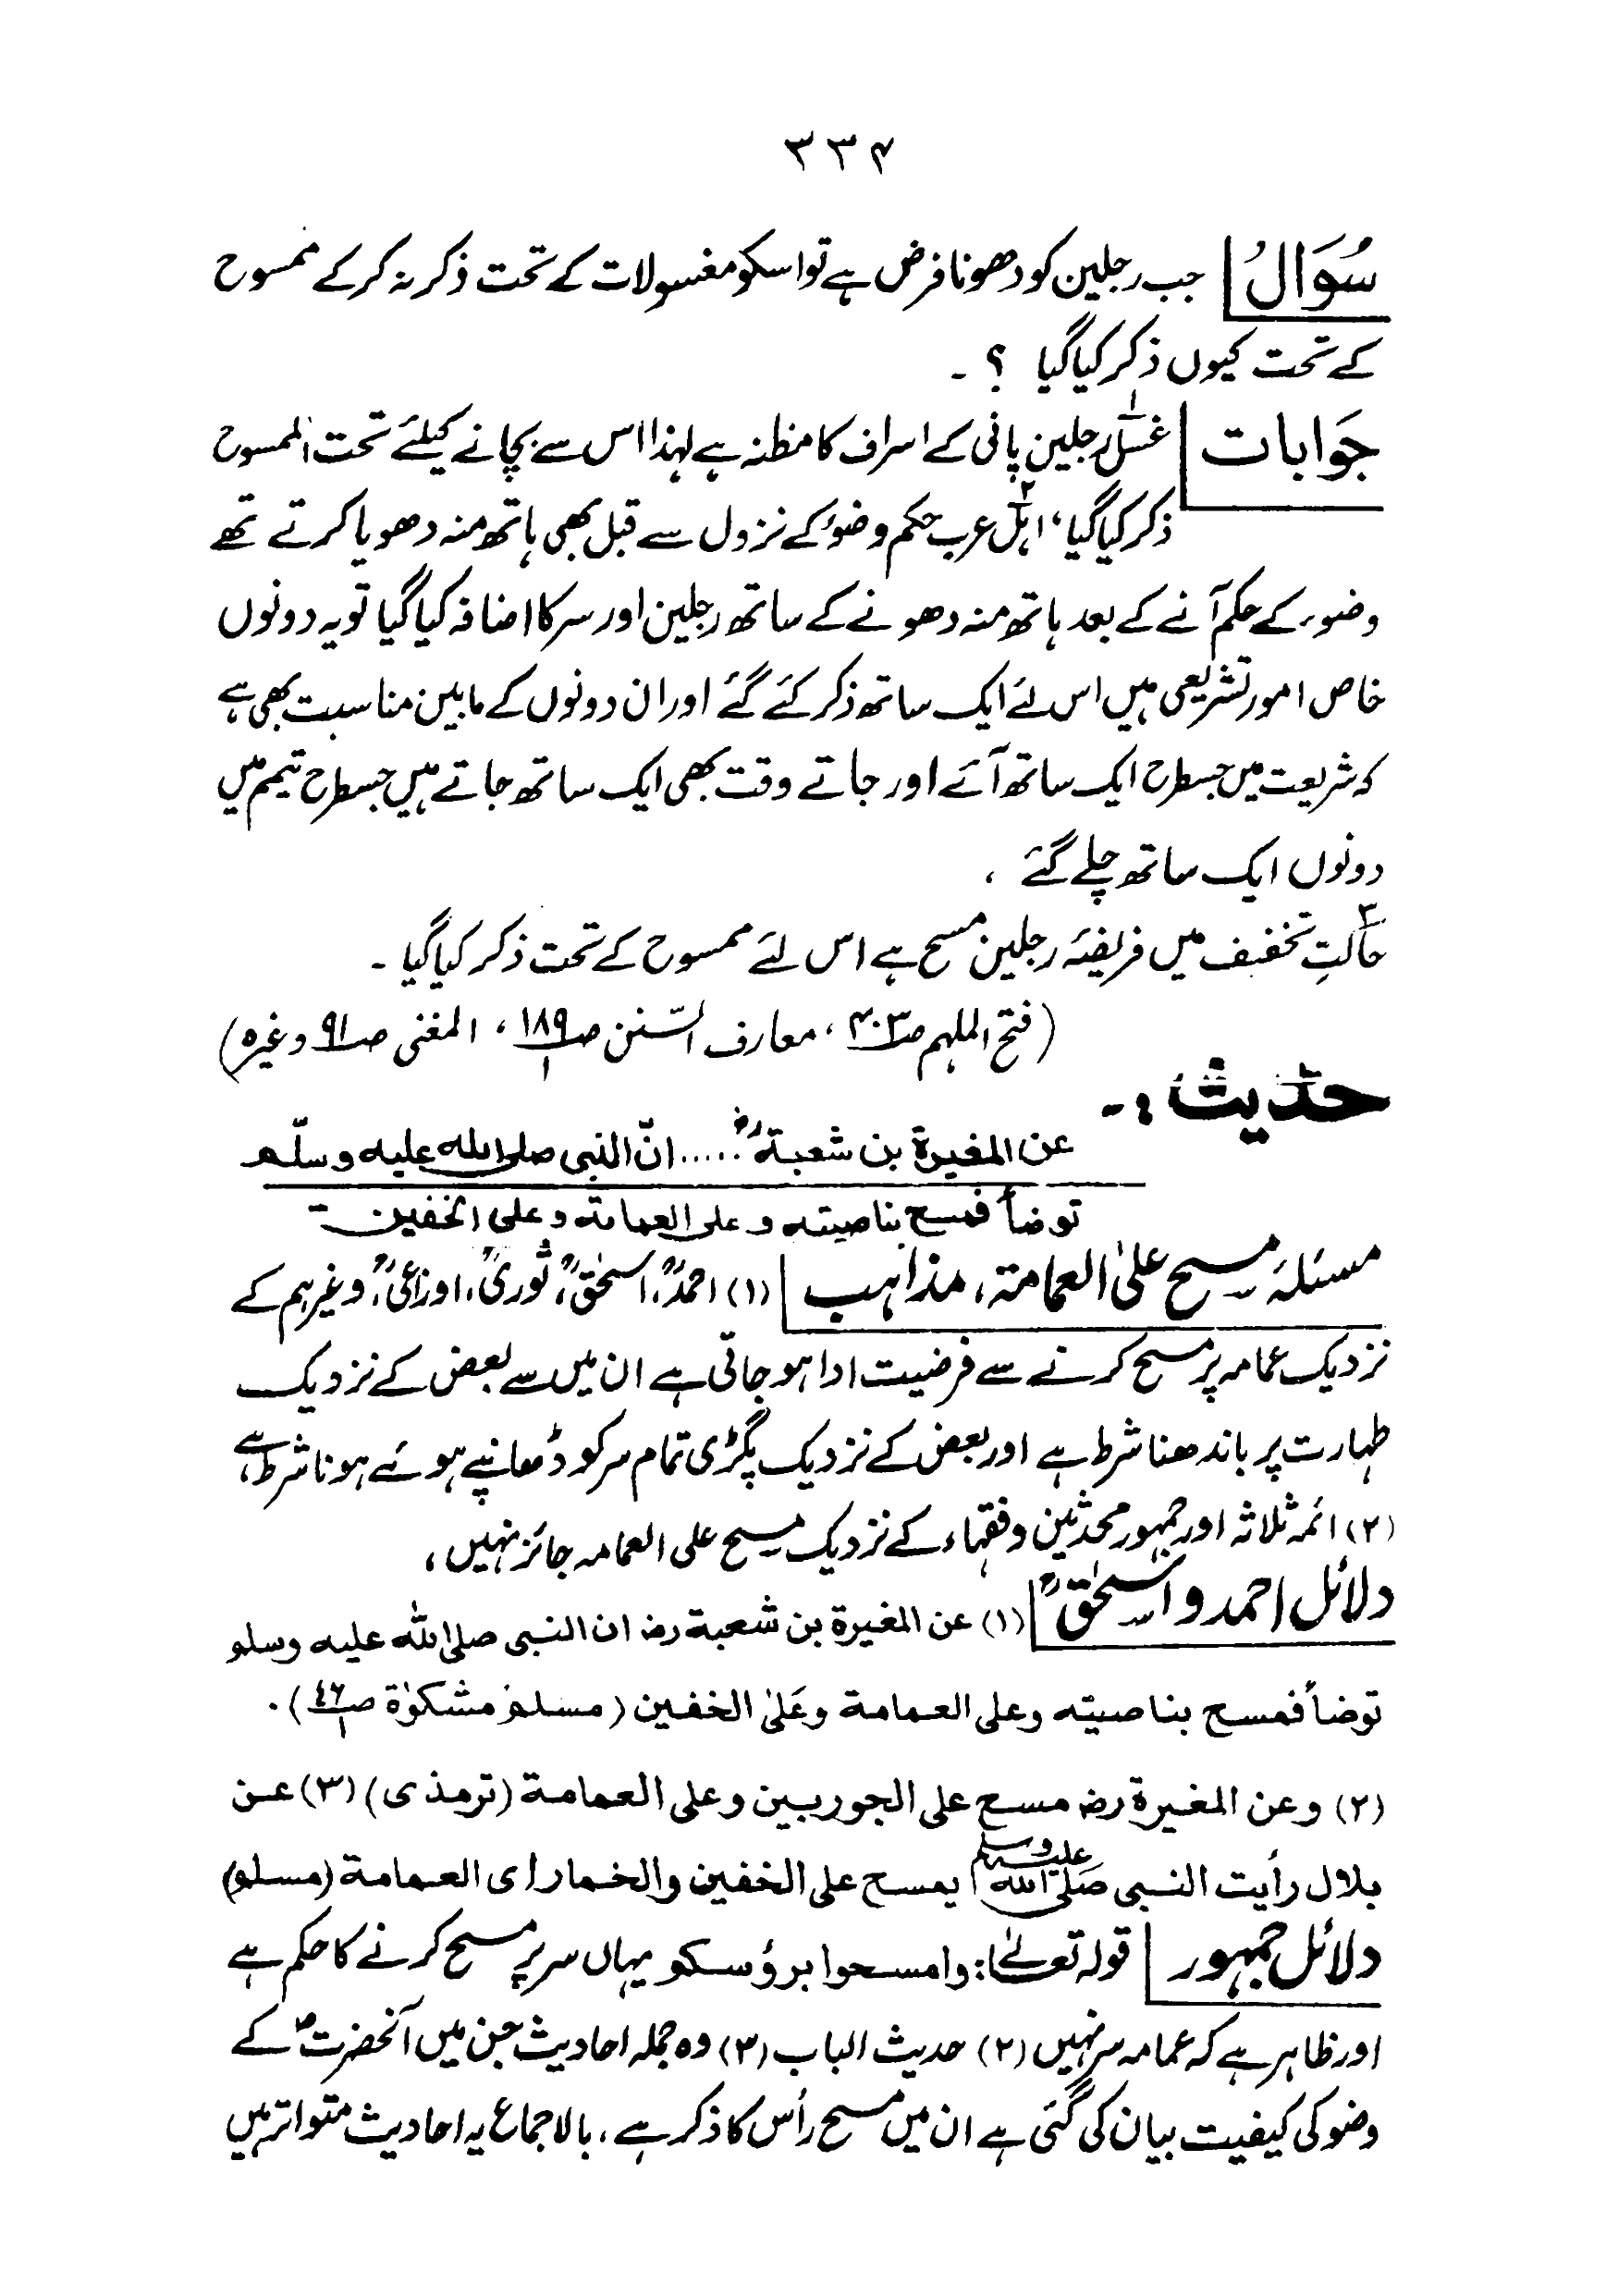 ۳۳۴
سُوَالُ جب رجلین کو دھونا فرض ہے تو اسکو مغسولات کے تحت ذکر نہ کرکے ممسوح
کے تحت کیوں ذکر کیا گیا ؟ ۔
جَوَابات ۱؎ غسل رجلین پانی کے اسراف کا مظنہ ہے لہذا اس سے بچانے کیلئے تحت الممسوح
ذکر کیا گیا، ۲؎ اہل عرب حکم وضوء کے نزول سے قبل بھی ہاتھ منہ دھویا کرتے تھے
وضوء کے حکم آنے کے بعد ہاتھ منہ دھونے کے ساتھ رجلین اور سر کا اضافہ کیا گیا تو یہ دونوں
خاص امور تشریعی ہیں اس لئے ایک ساتھ ذکر کئے گئے اور ان دونوں کے مابین مناسبت بھی ہے
کہ شریعت میں جسطرح ایک ساتھ آئے اور جاتے وقت بھی ایک ساتھ جاتے ہیں جسطرح تیمم میں
دونوں ایک ساتھ چلے گئے ،
۳؎ حالتِ تخفیف میں فریضۂ رجلین مسح ہے اس لئے ممسوح کے تحت ذکر کیا گیا ۔
(فتح الملہم صـ۴۰۳، معارف السّنن صـ۱۸۹/۱، المغنی صـ۹۱ وغیرہ)
حدیث :۔
عن المغیرة بن شعبة رض ..... انّ النبی صلی الله علیه وسلّم
توضأ فمسح بناصیته وعلی العمامة وعلی الخفین ۔
مسئلۂ مسح علیٰ العمامة، مذاہب (۱) احمدؒ، اسحٰقؒ، ثوریؒ، اوزاعیؒ، وغیرہم کے
نزدیک عمامہ پر مسح کرنے سے فرضیت ادا ہو جاتی ہے ان میں سے بعض کے نزدیک
طہارت پر باندھنا شرط ہے اور بعض کے نزدیک پگڑی تمام سر کو ڈھانپے ہوئے ہونا شرط ہے،
(۲) ائمہ ثلاثہ اور جمہور محدثین وفقہاء کے نزدیک مسح علی العمامہ جائز نہیں ،
دلائل احمد و اسحٰقؒ (۱) عن المغیرة بن شعبة رض ان النبی صلی الله علیه وسلم
توضأ فمسح بناصیته وعلی العمامة وعَلیٰ الخفین (مسلم مشکوٰة صـ۴۶/۱) ۔
(۲) وعن المغیرة رض مسح علی الجوربین وعلی العمامة (ترمذی) (۳) عن
بلال رأیت النبی صلی الله علیه وسلم یمسح علی الخفین والخمار ای العمامة (مسلم)
دلائل جمہور قوله تعالیٰ: وامسحوا برؤسكم یہاں سر پر مسح کرنے کا حکم ہے
اور ظاہر ہے کہ عمامہ سر نہیں (۲) حدیث الباب (۳) وہ جملہ احادیث جن میں آنحضرتؐ کے
وضو کی کیفیت بیان کی گئی ہے ان میں مسح رأس کا ذکر ہے ، بالاجماع یہ احادیث متواتر ہیں